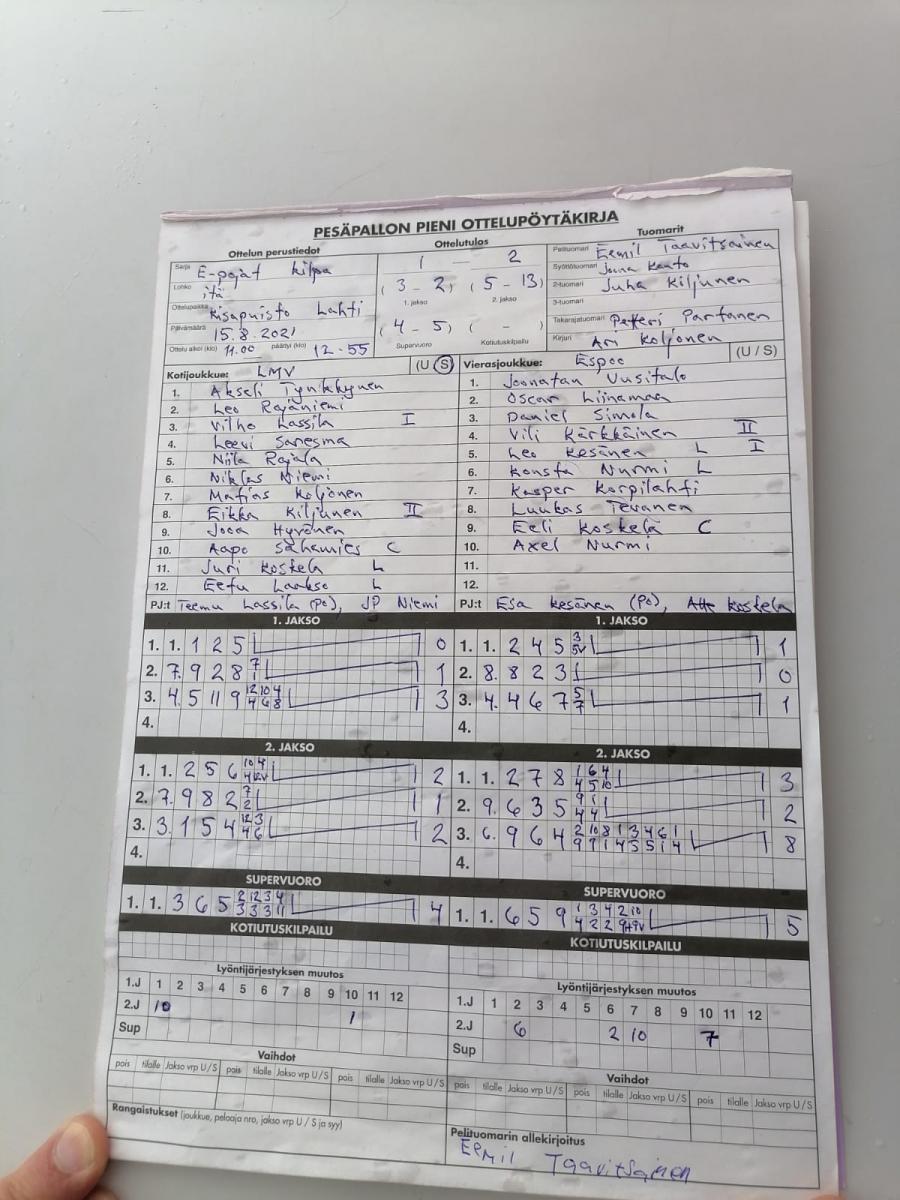 PESÄPALLON PIENI OTTELUPÖYTÄKIRJA
Ottelun perustiedot
Sarja E-pojat kilpa
Lohko itä
Ottelupaikka Kisapuisto Lahti
Päivämäärä 15.8.2021
Ottelu alkoi (klo) 11.00 päättyi (klo) 12-55
Ottelutulos
1 - 2
(3 - 2) (5 - 13)
1. jakso 2. jakso
(4 - 5) ( - )
Supervuoro Kotiutuskilpailu
Tuomarit
Pelituomari Eemil Taavitsainen
Syöttötuomari Joona Kauto
2-tuomari Juha Kiljunen
3-tuomari
Takarajatuomari Petteri Partanen
Kirjuri Ari Koljonen
Kotijoukkue: LMV (U/S)
1. Akseli Tynkkynen
2. Leo Rajaniemi
3. Vilho Lassila I
4. Leevi Sanesma
5. Niila Rajala
6. Niklas Niemi
7. Matias Koljonen
8. Eikka Kiljunen II
9. Jooa Hyvönen
10. Aapo Sahamies C
11. Juri Koskela L
12. Eetu Laakso L
PJ:t Teemu Lassila (Po), JP Niemi
Vierasjoukkue: Espoo (U/S)
1. Joonatan Uusitalo
2. Oscar Liinamaa
3. Daniel Simola
4. Vili Kärkkäinen II
5. Leo Kesänen L I
6. Konsta Nurmi L
7. Kasper Korpilahti
8. Luukas Tevanen
9. Eeli Koskela C
10. Axel Nurmi
11.
12.
PJ:t Esa Kesänen (Po), Atte Koskela
1. JAKSO
1. 1. 1 2 5 0
2. 7. 9 2 8 7 1 1
3. 4. 5 11 9 12 10 4 4 6 8 3
4.
1. JAKSO
1. 1. 2 4 5 3 5V 1
2. 8. 8 2 3 0
3. 4. 4 6 7 5 7 1
4.
2. JAKSO
1. 1. 2 5 6 10 4 4 12V 2
2. 7. 9 8 2 7 2 1
3. 3. 1 5 4 12 3 4 6 2
4.
2. JAKSO
1. 1. 2 7 8 1 6 4 4 5 10 3
2. 9. 6 3 5 9 1 4 4 2
3. 6. 9 6 4 2 10 8 1 3 4 6 1 9 9 1 4 5 5 1 4 8
4.
SUPERVUORO
1. 1. 3 6 5 2 12 3 4 3 3 3 11 4
SUPERVUORO
1. 1. 6 5 9 1 3 4 2 10 4 2 2 9 5
KOTIUTUSKILPAILU
KOTIUTUSKILPAILU
Lyöntijärjestyksen muutos
1.J 1 2 3 4 5 6 7 8 9 10 11 12
2.J 10 1
Sup
Lyöntijärjestyksen muutos
1.J 1 2 3 4 5 6 7 8 9 10 11 12
2.J 6 2 10 7
Sup
Vaihdot
pois tilalle Jakso vrp U/S pois tilalle Jakso vrp U/S pois tilalle Jakso vrp U/S
Vaihdot
pois tilalle Jakso vrp U/S pois tilalle Jakso vrp U/S pois tilalle Jakso vrp U/S
Rangaistukset (joukkue, pelaaja nro, jakso vrp U/S ja syy)
Pelituomarin allekirjoitus
Eemil Taavitsainen